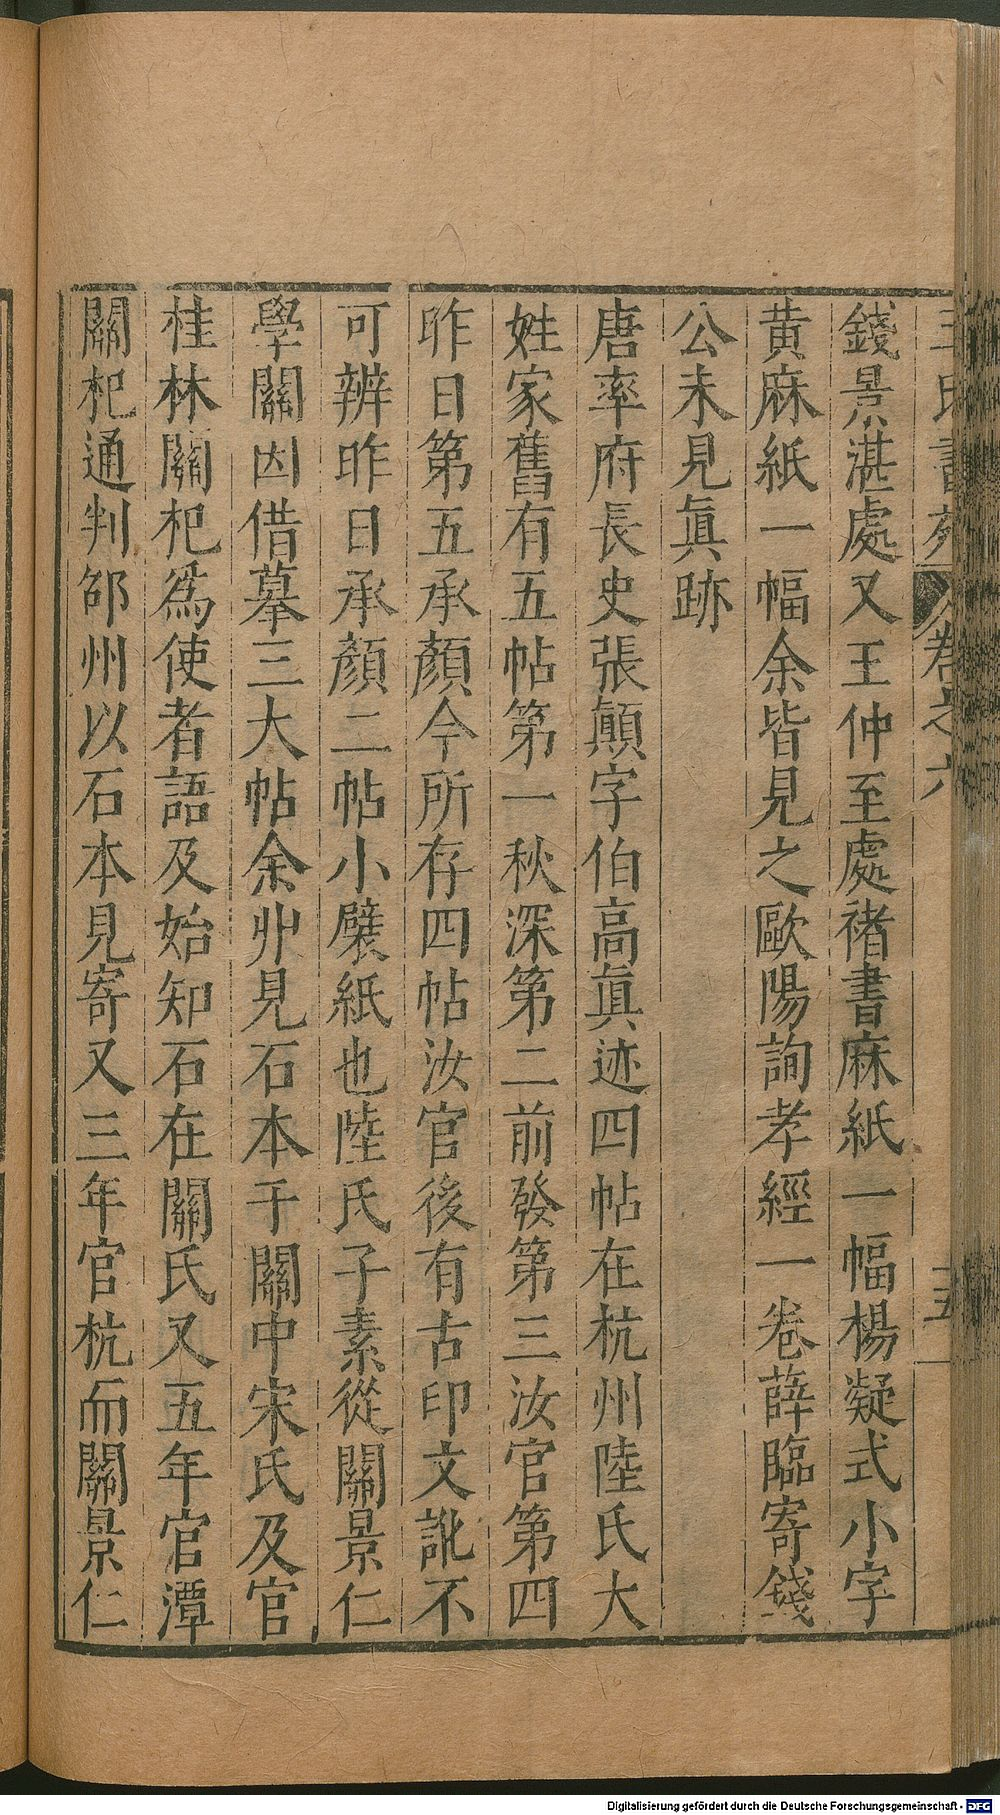 王氏書苑 卷之六 五
錢景湛處又王仲至處褚書麻紙一幅楊凝式小字
黃麻紙一幅余皆見之歐陽詢孝經一卷薛臨寄錢
公未見眞跡
唐率府長史張顚字伯高眞迹四帖在杭州陸氏大
姓家舊有五帖第一秋深第二前發第三汝官第四
昨日第五承顏今所存四帖汝官後有古印文訛不
可辨昨日承顏二帖小襞紙也陸氏子素從關景仁
學關因借摹三大帖余丱見石本于關中宋氏及官
桂林關杞爲使者語及始知石在關氏又五年官潭
關杞通判邵州以石本見寄又三年官杭而關景仁
Digitalisierung gefördert durch die Deutsche Forschungsgemeinschaft - DFG